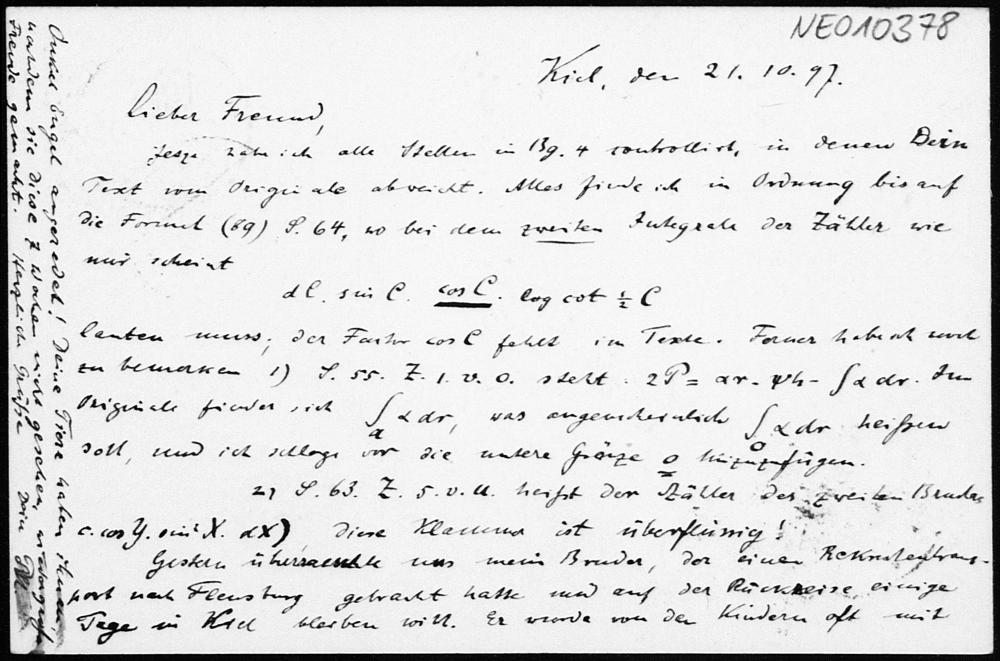 NE010378
Kiel, den 21. 10. 97.
Lieber Freund,
Jetzt habe ich alle Stellen in Bg. 4 controllirt, in denen Dein
Text vom Originale abweicht. Alles finde ich in Ordnung bis auf
die Formel (89) S. 64, wo bei dem zweiten Integrale der Zähler wie
mir scheint
dC. sin C. cos C. log cot ½ C
lauten muss; der Factor cos C fehlt im Texte. Ferner habe ich noch
zu bemerken 1) S. 55. Z. 1. v. o. steht: 2P = αr - ψh - ∫ α dr. Im
Originale findet sich ∫a α dr, was augenscheinlich ∫0 α dr heißen
soll, und ich schlage vor die untere Grenze 0 hinzuzufügen.
2) S. 63. Z. 5. v. u. heißt der Zähler des zweiten Bruches
c. cos Y. sin X. dX) diese Klammer ist überflüssig!
Gestern überraschte uns mein Bruder, der einen Rekrutentrans-
port nach Flensburg gebracht hatte und auf der Rückreise einige
Tage in Kiel bleiben will. Er wurde von den Kindern oft mit
Onkel Engel angeredet! Deine Tiere haben ihnen,
nachdem sie diese 7 Wochen nicht gesehen,
Freude gemacht. Herzliche Grüße Dein